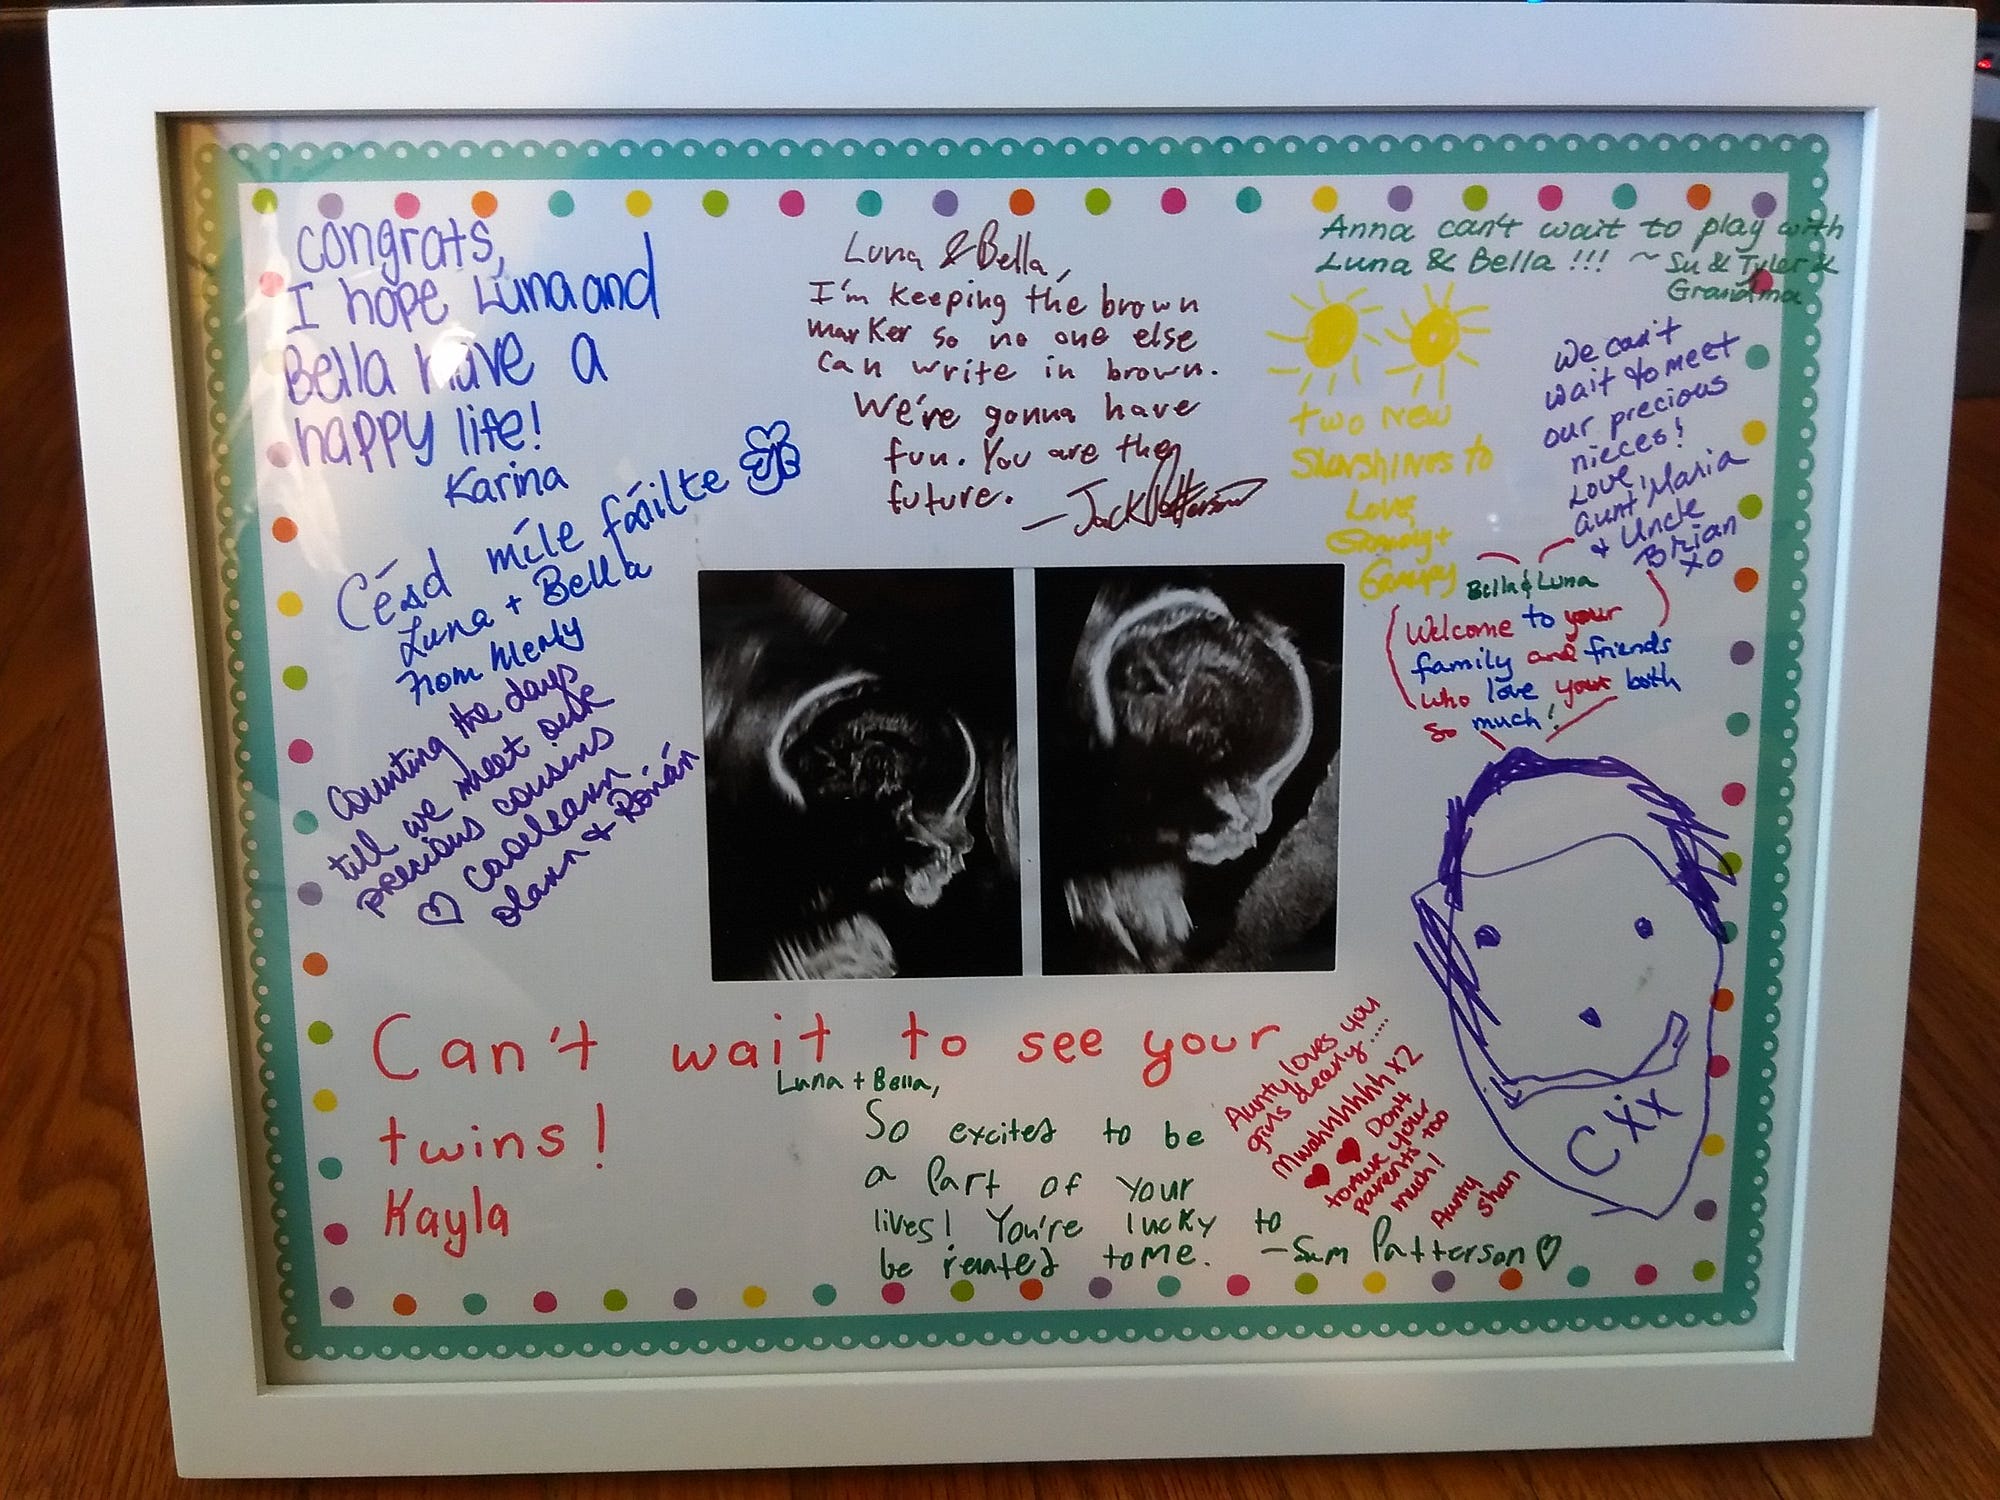 congrats,
I hope Luna and
Bella have a
happy life!
Karina
Luna & Bella,
I'm keeping the brown
marker so no one else
can write in brown.
We're gonna have
fun. You are the
future.
—Jack Patterson
Anna can't wait to play with
Luna & Bella !!! ~ Su & Tyler &
Grandma
two New
to
Love,
We can't
wait to meet
our precious
nieces!
Love,
aunt Maria
+ Uncle
Brian
xo
Céad míle fáilte
Luna + Bella
from
Counting the days
till we meet our
precious cousins
♡
+ Rónán
Bella & Luna
Welcome to your
family and friends
who love your both
so much!
C xxx
Can't wait to see your
twins!
Kayla
Luna + Bella,
So excited to be
a part of your
lives! You're lucky to
be related to me. —Sam Patterson ♡
Aunty loves you
girls dearly....
Mwahhhhhh x2
♥ ♥ Don't
torture your
parents too
much!
Aunty
Shan